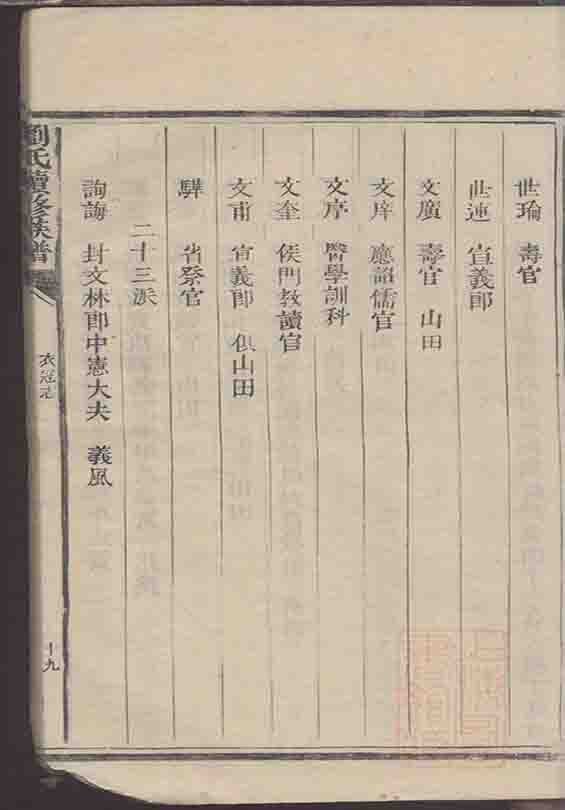 世瑜 壽官
世連 宣義郎
文廣 壽官 山田
文庠 應詔儒官
文序 醫學訓科
文奎 侯門教讀官
文甫 宣義郎 俱山田
驊 省祭官
二十三派
詢誨 封文林郎中憲大夫 義風
劉氏續修族譜
衣冠志
十九